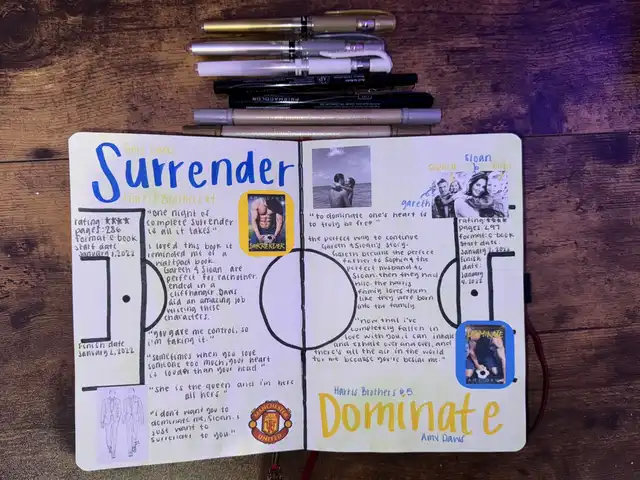 Surrender
rating: ★★★★
pages: 286
format: e-book
start date
January 1, 2022
Finish date
January 2, 2022
"one night of
complete surrender
is all it takes"
I loved this book it
reminded me of a
wattpad book.
Gareth & Sloan are
perfect for eachother.
ended in a
cliffhanger. Daws
did an amazing job
voicing these
characters.
"you gave me control, so
i'm taking it."
"sometimes when you love
someone too much, your heart
is louder than your head"
"she is the queen and i'm here
all hers"
"I don't want you to
dominate me, Sloan. I
just want to
surrender to you."
SURRENDER
MANCHESTER
UNITED
sloan
gareth
"to dominate one's heart is
to truly be free"
the perfect way to continue
Gareth & Sloan's story.
Gareth became the perfect
father to Sophia the
perfect husband to
Sloan. then they had
Milo. the Harris
Family loves them
like they were born
into the family.
"now that i've
completely fallen in
love with you, I can inhale
and exhale over and over, and
there's all the air in the world
for me because you're beside me."
rating: ★★★★
pages: 297
format: e-book
start date:
January 2, 2022
Finish
date
January
4, 2022
DOMINATE
AMY DAWS
Harris Brothers #5
Dominate
Amy Daws